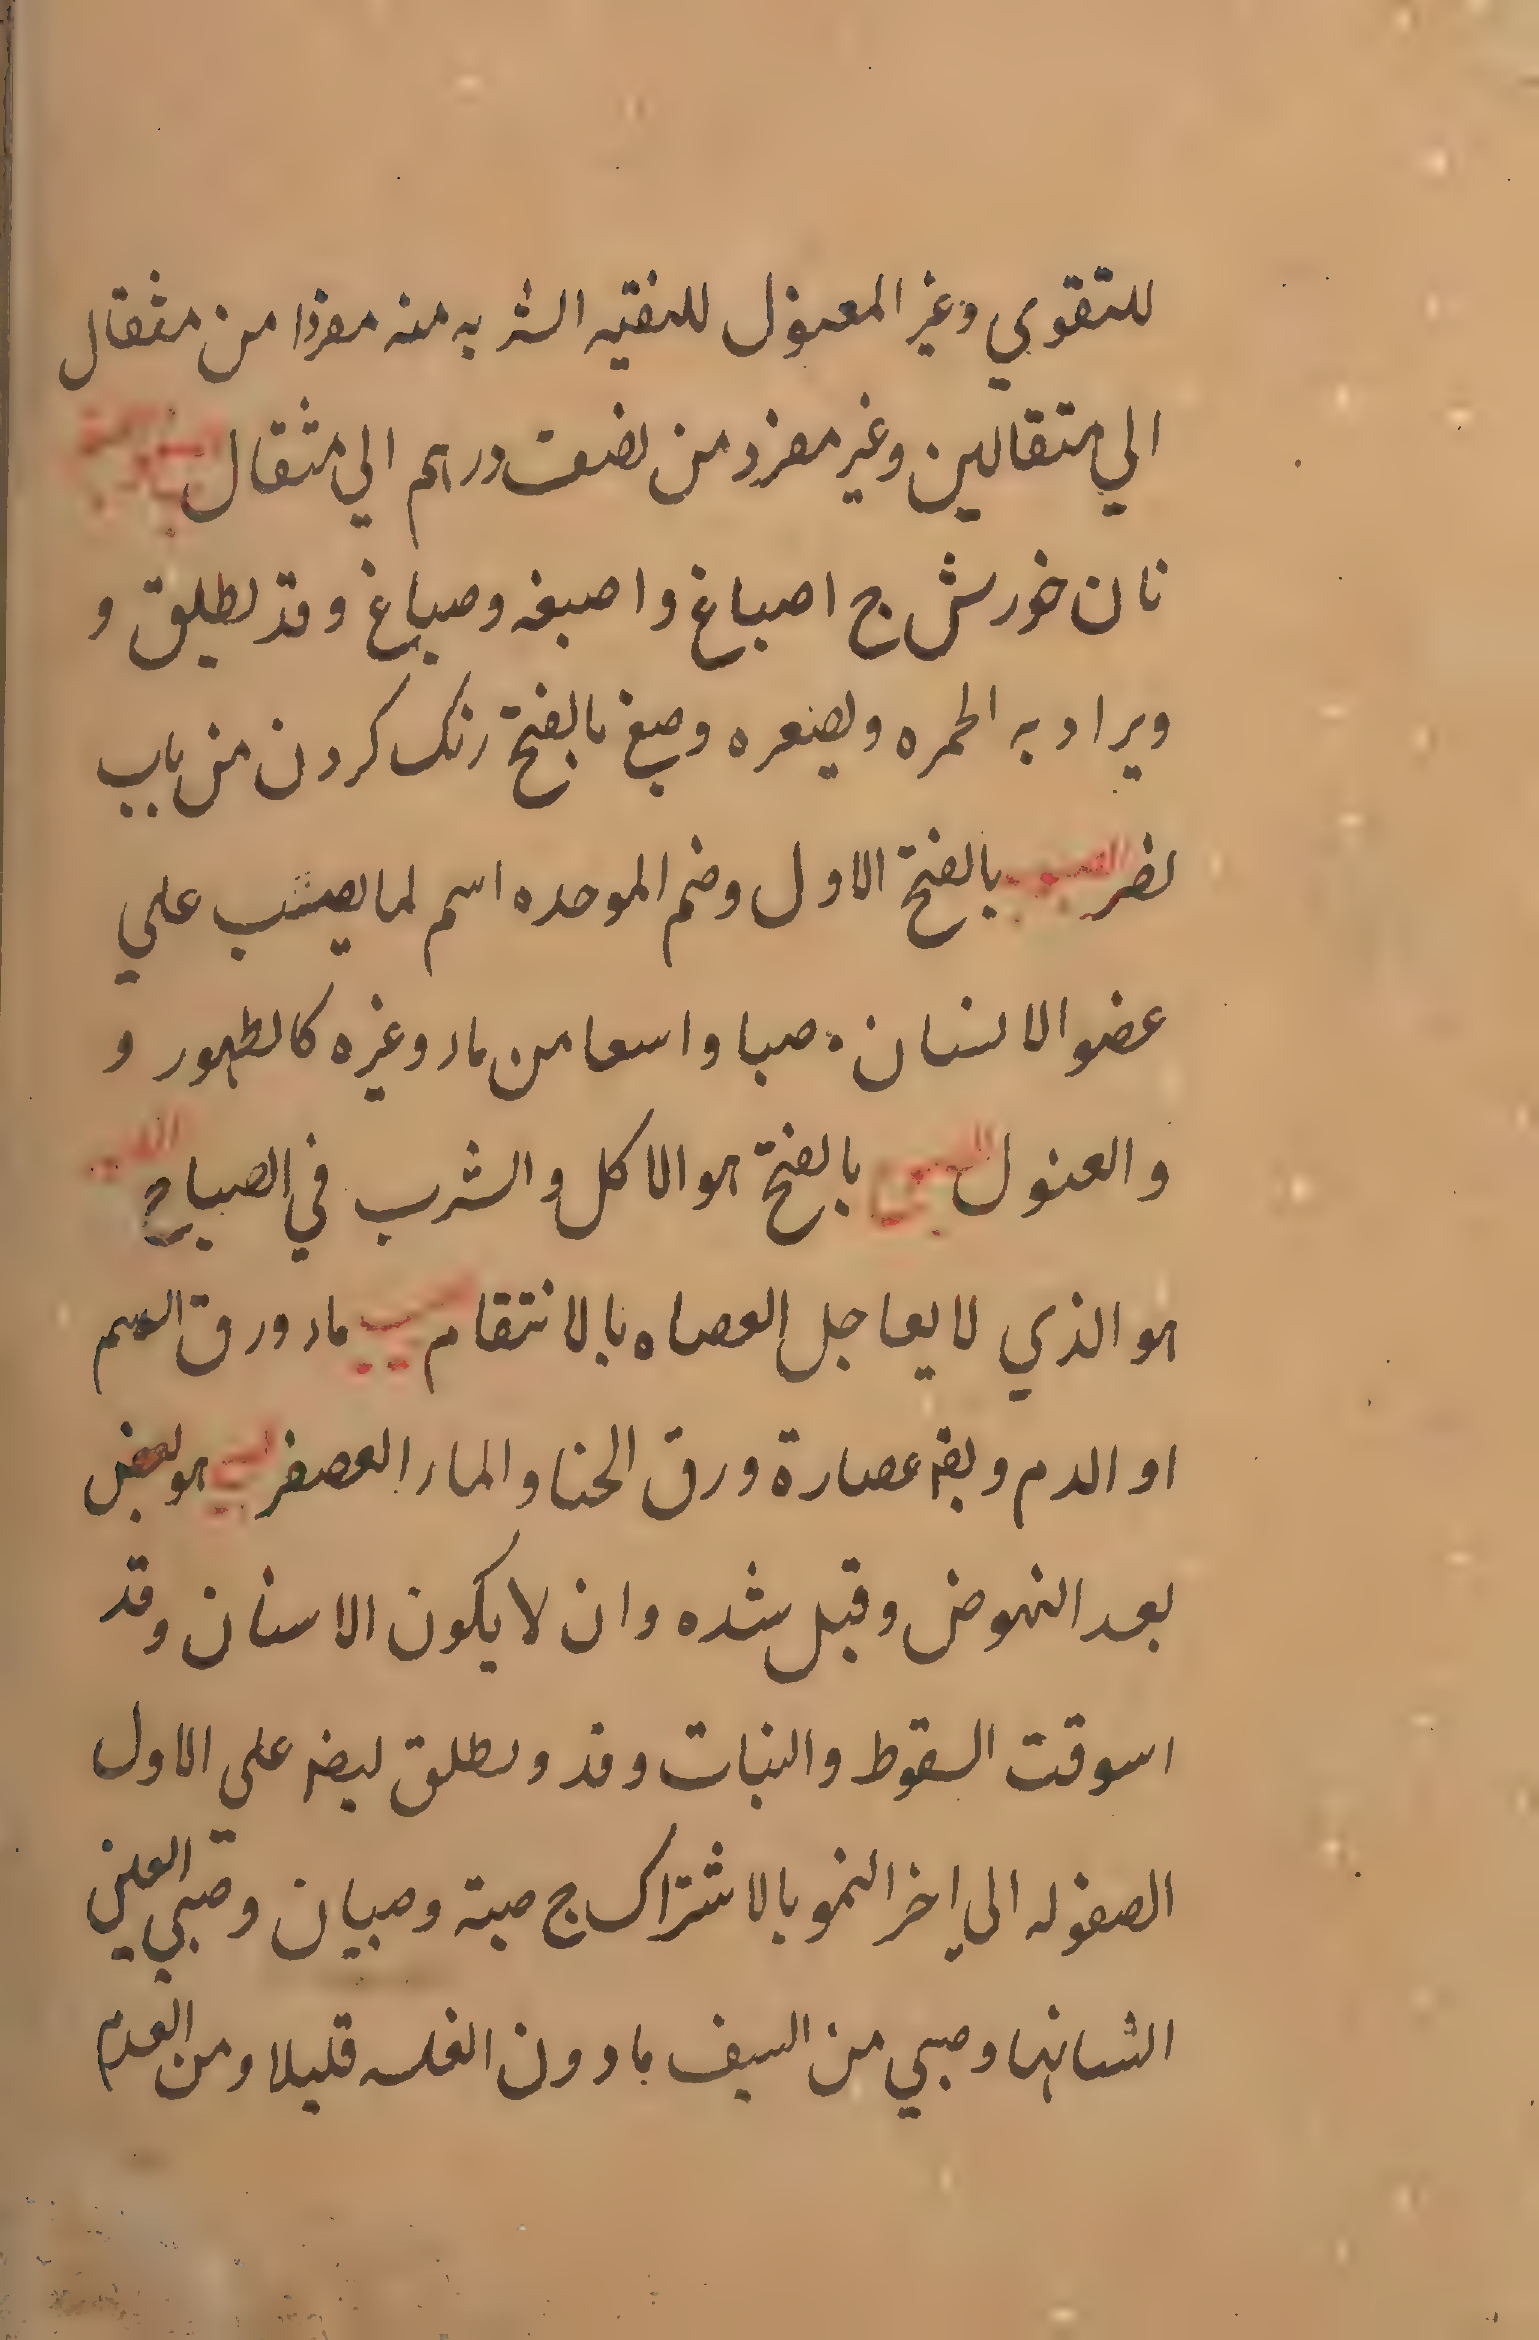 للتقوي وغير المعسول للنقيه الشربه منه مفردا من مثقال
الي مثقالين وغير مفرد من نصف درهم الي مثقال
نان خورش ج اصباغ واصبغه وصباغ وقد يطلق و
ويراد به الحمره ويصعره وصبغ بالفتح رنك كردن من باب
نصر الصبوب بالفتح الاول وضم الموحده اسم لما يصبب علي
عضو الانسان صبا واسعا من ماء وغيره كالطهور و
والعنول بالفتح هو الاكل والشرب في الصباح
هو الذي لا يعاجل العصاه بالانتقام صبيب ماء ورق السم
او الدم وبضم عصارة ورق الحنا والماء العصفر هو لبعض
بعد النهوض وقبل شده وان لا يكون الاسنان وقد
اسوقت السقوط والنبات وقد ويطلق ليضم علي الاول
الصفوله الي اخر النمو بالاشتراك ج صبية وصبيان وصبي العين
انسانها وصبي من السيف مادون الغلسه قليلا ومن القدم